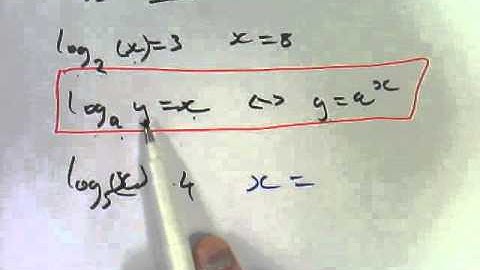 log₂(x)=3 x=8
logₐ y=x ↔ y=aˣ
log₅(x) 4 x=